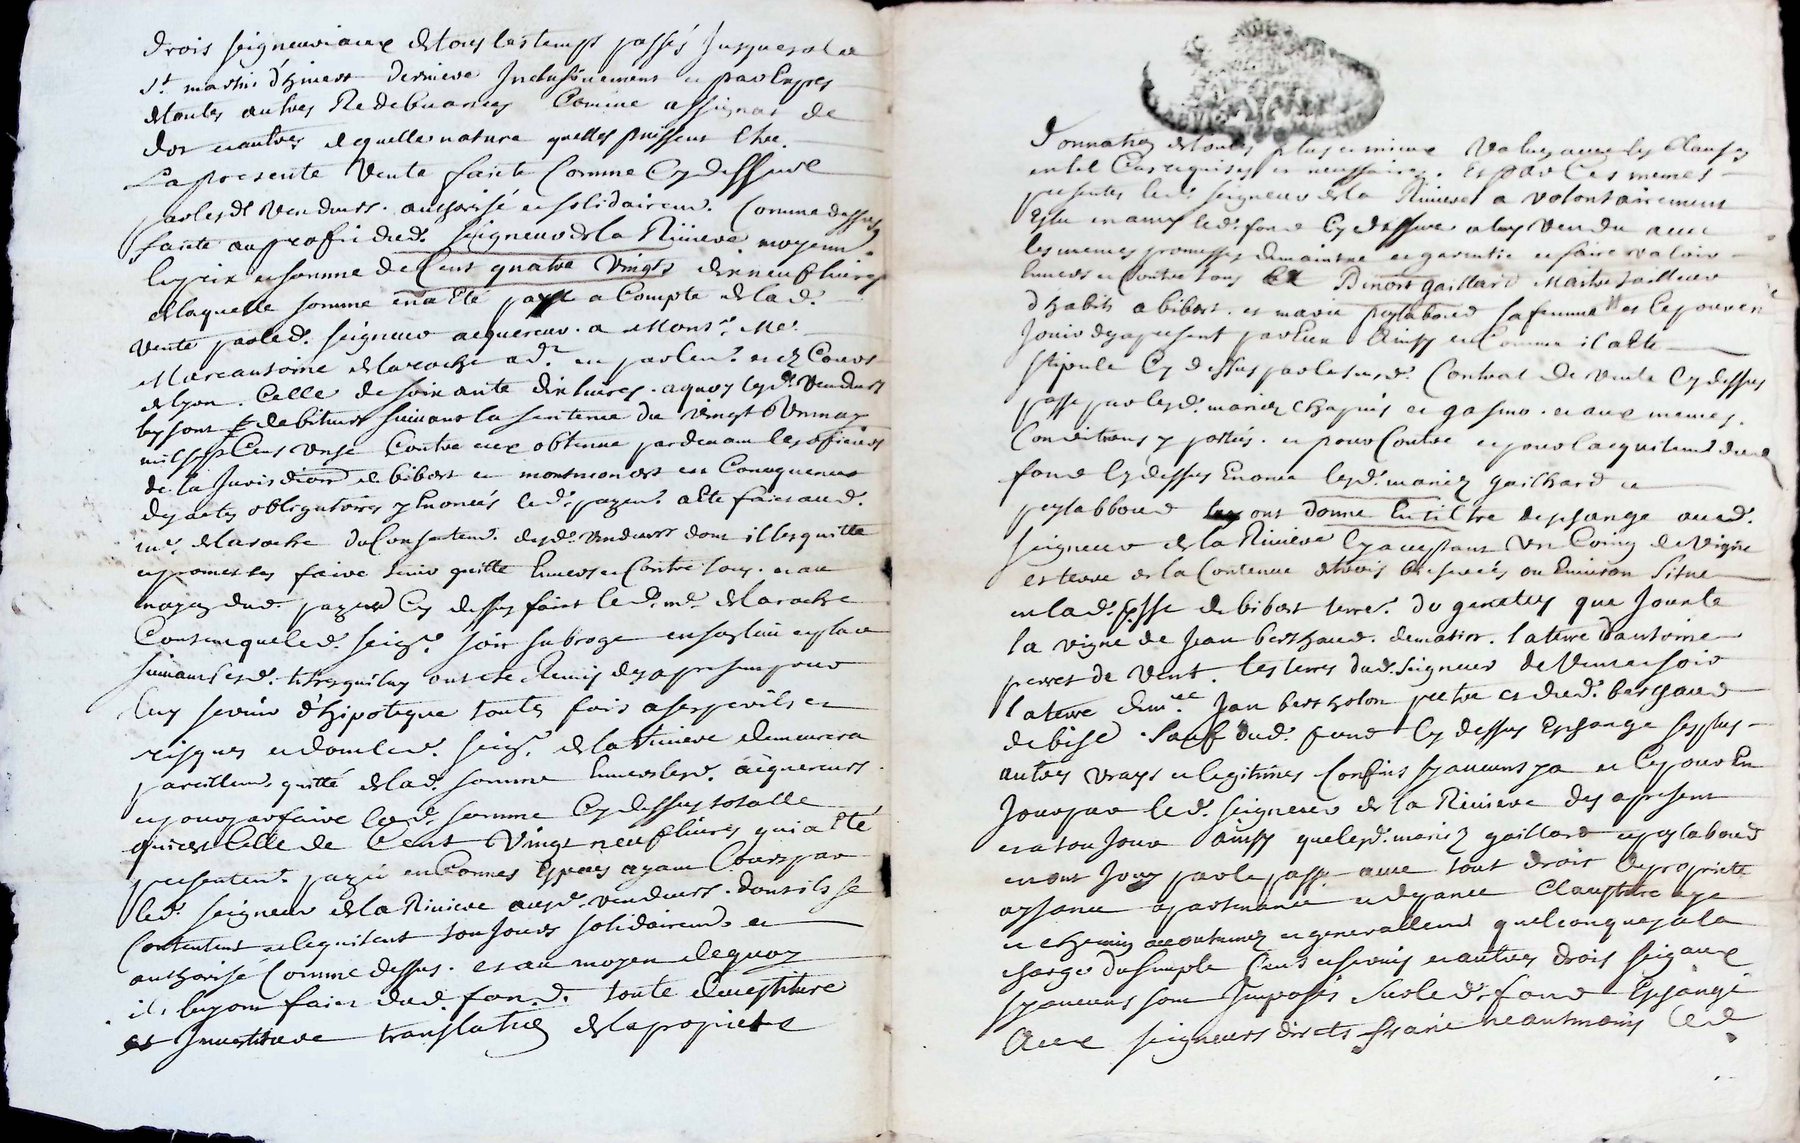 drois seigneuriaux de tous les temps passés Jusques a la
st. martin d'hiver derniere Inclusivement et par Exprès
de toutes autres Redebvances Comme assignat de
dot et autres de quelle nature quelles puissent Etre
La presente Vente faicte Comme Cy dessus
par lesds. Vendeurs authorisé et solidairemt. Comme dessus
faicte au profit dud. seigneur de la Riviere moyenn.
le prix et somme de Cent quatre Vingts dix neuf livres
de laquelle somme en a Eté payé a Compte de lad.
Vente par led. seigneur acquereur a Monsr. Me.
Marc antoine delaroche adt. en parlemt. et ez Cours
de lyon. Celle de soixante dix livres. a quoy lesds. Vendeurs
luy sont debiteurs suivant la sentence du vingt
mil sept Cens onze Contre eux obtenue pardevant les officiers
de la Jurisdiction de bibost et en Consequence
des actes obligatoires y Enoncés led. payemt. a Eté fait aud.
me. delaroche du Consentemt. desds. vendeurs dont il les quitte
et promet les faire tenir quitte Envers et Contre tous. et au
moyen dud. payemt Cy dessus fait led. me. delaroche
Consent que led. seigr. soit subrogé en son lieu et place
suivant lesd. titres qu'il luy ont été Remis des a present pour
luy servir d'hipoteque toutes fois a ses perils et
risques et dont led. seigr. de la Riviere demeurera
pareillemt. quitté de lad. somme Envers lesd.
et pour parfaire lad. somme Cy dessus totalle
qui est Celle de Cent Vingt neuf livres qui a Eté
presentemt. payé en bonnes Especes ayant Cours par
led. seigneur de la Riviere auxds. vendeurs. dont ils se
Contentent et le quittent toujours solidairemt. et
authorisé Comme dessus. et au moyen de quoy
ils luy ont fait dud fond. toute devestiture
et Investiture translation de la proprieté
donnation de toutes plus et mieux Values avec les Clauses
en tel Cas requises et necessaires. Et par Ces memes
presentes led. seigneur de la Riviere a volontairement
led. fond Cy dessus a luy Vendu avec
les memes promesses de maintenir et garantir et faire valoir
Envers et Contre tous a Benoit gaillard Maitre tailleur
d'habits a bibost. et marie peylaboud sa femme
Jouir des a present par Eux Ainsy et Comme il a Eté
stipulé Cy dessus par le susd. Contrat de Vente Cy dessus
passé par lesd. mariez Chapuis et gasmo. et aux memes
Conditions y portés. et pour Contre et pour lacquitemt dud.
fond Cy dessus Enoncé lesd. mariez gailhard et
peylabboud luy ont donné En tiltre deschange aud.
seigneur de la Riviere Cy acceptant Un Coing de Vigne
et terre de la Contenue de trois ou Environ Situé
en lad. psse de bibost terre. du genetey que Jouxte
la vigne de Jean berthaud. de matin. la terre d'antoine
perret de Vent. les terres dud. seigneur de Vent et soir
la terre de me. Jean bertholon pretre et dud. berthaud
de bise. Sauf dud. fond Cy dessus Eschangé ses plus
autres vrays et legitimes Confins sy aucuns y a et Ce pour En
Jouyr par led. seigneur de la Riviere des a present
et a toujour ainsy que lesd. mariez gaillard et peylaboud
en ont Jouy par le passé avec tout drois de proprieté
aysance apartenance et depance Clausture
et chemins accoutumez et generallemt quelconques a la
charge du simple Cens et servis et autres drois seigaux
sy aucuns sont Imposés sur led. fond Eschangé
Aux seigneurs directs franc neantmoins led